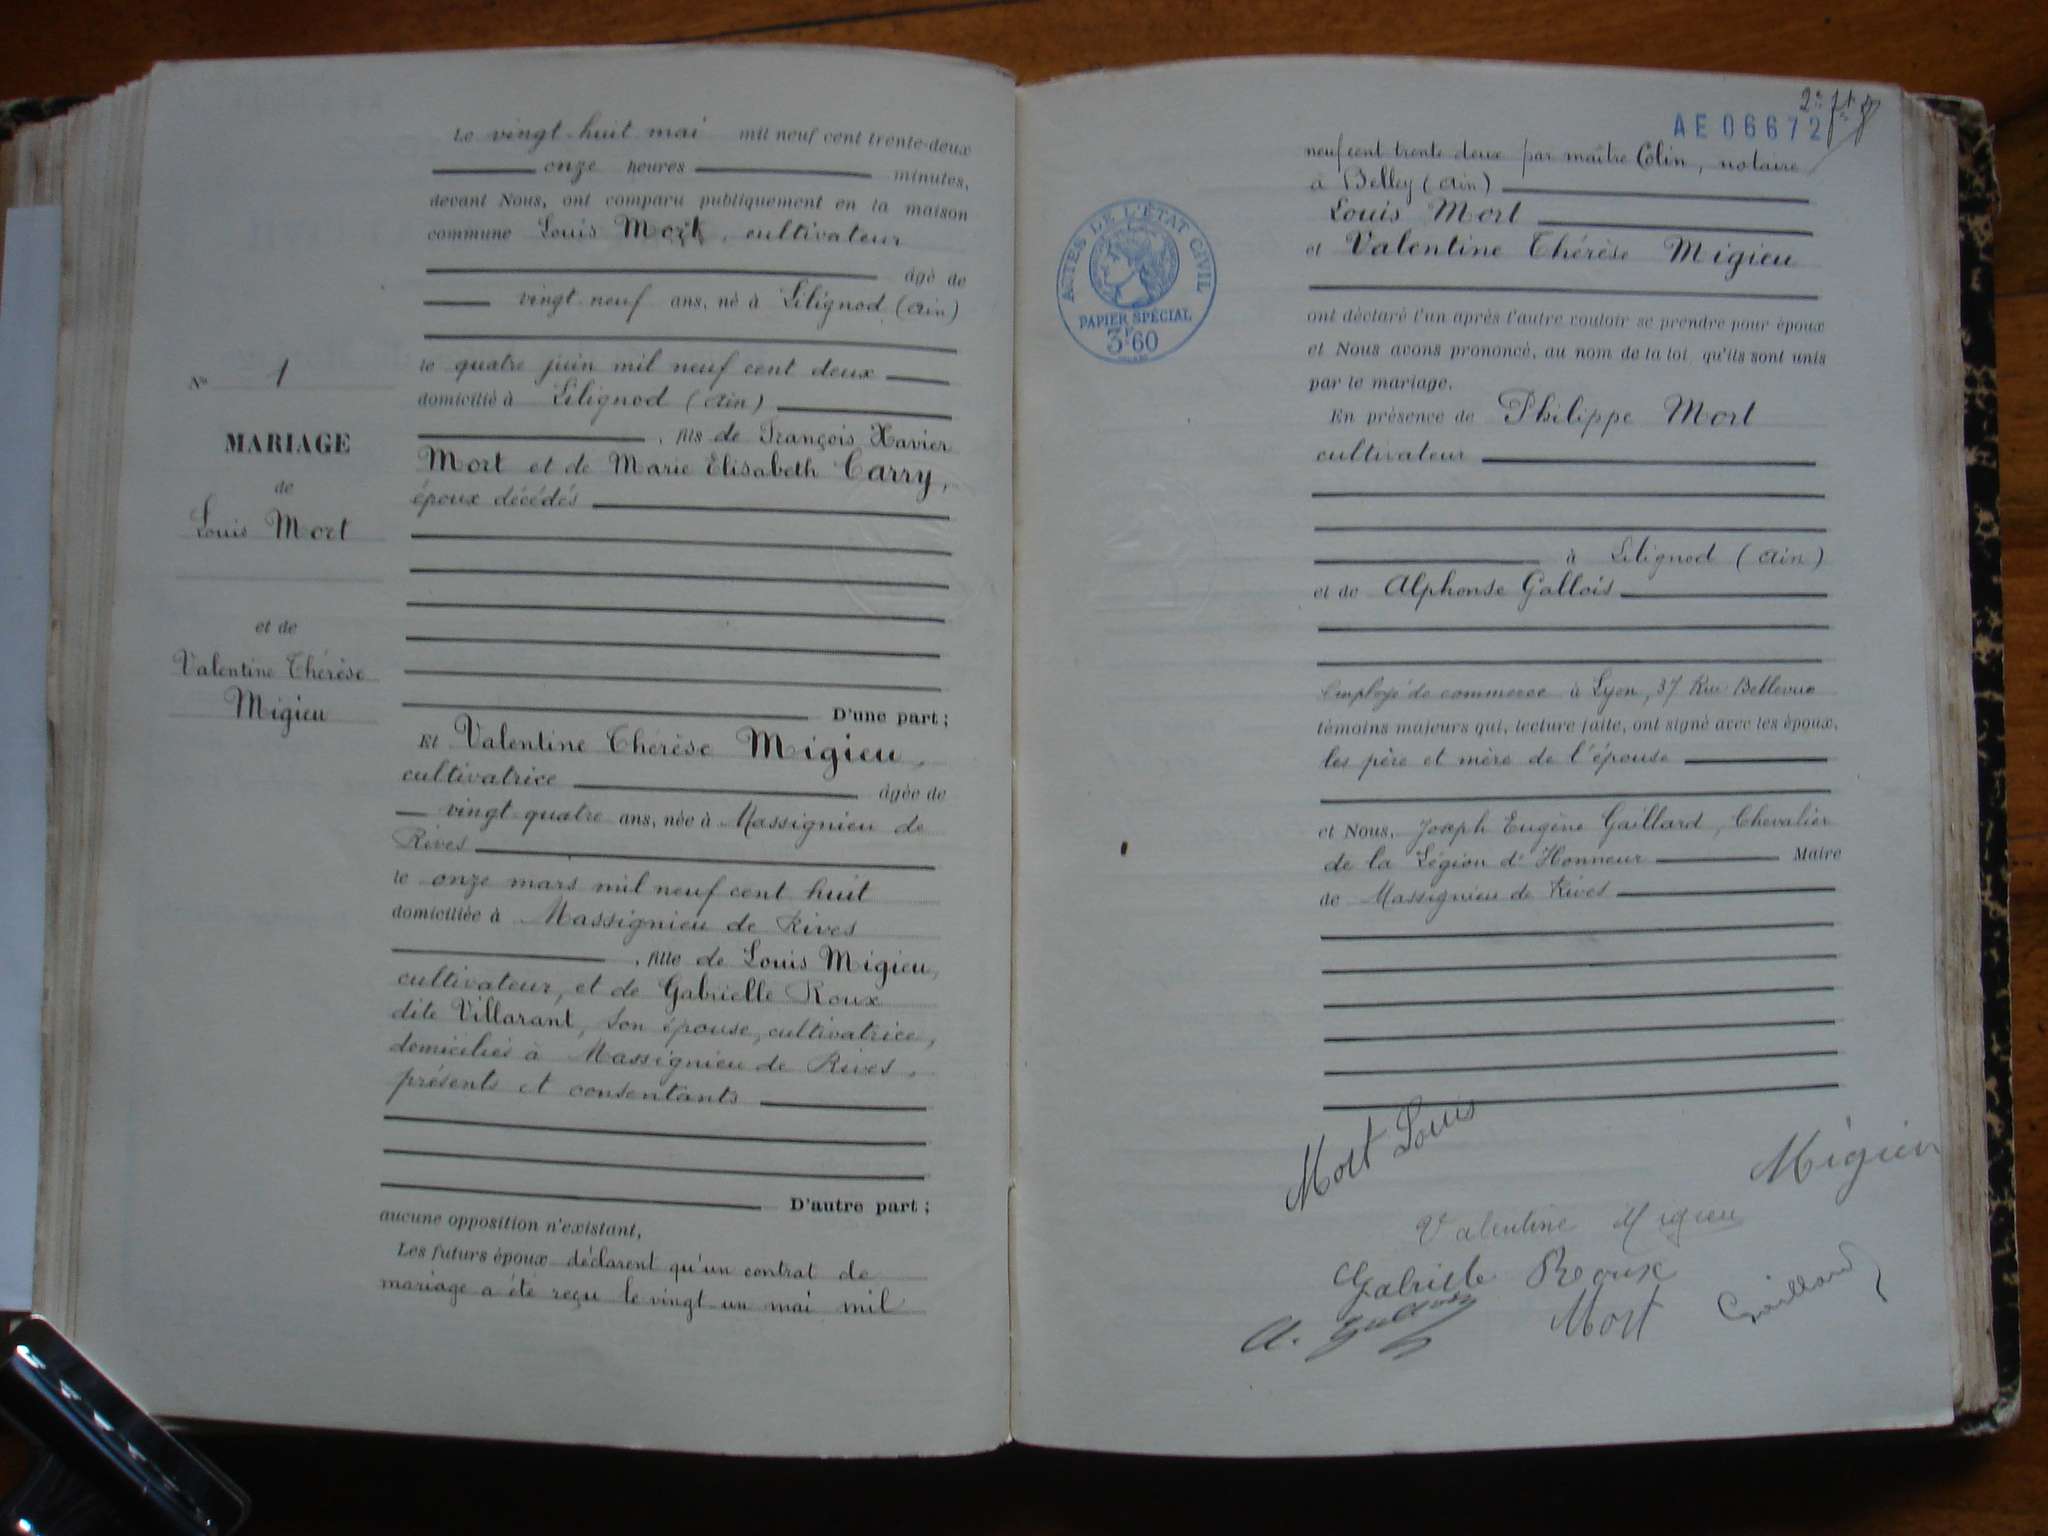 N° 1
MARIAGE
de
Louis Mort
et de
Valentine Thérèse
Migieu
Le vingt-huit mai mil neuf cent trente-deux
onze heures minutes,
devant Nous, ont comparu publiquement en la maison
commune Louis Mort, cultivateur
âgé de
vingt neuf ans, né à Lilignod (Ain)
le quatre juin mil neuf cent deux
domicilié à Lilignod (Ain)
, fils de François Xavier
Mort et de Marie Elisabeth Carry,
époux décédés
D'une part;
Et Valentine Thérèse Migieu,
cultivatrice âgée de
vingt quatre ans, née à Massignieu de
Rives
le onze mars mil neuf cent huit
domiciliée à Massignieu de Rives
, fille de Louis Migieu,
cultivateur, et de Gabrielle Roux
dite Villarant, son épouse, cultivatrice,
domiciliés à Massignieu de Rives,
présents et consentants
D'autre part;
aucune opposition n'existant,
Les futurs époux déclarent qu'un contrat de
mariage a été reçu le vingt-un mai mil
2e
AE 06672
neuf cent trente deux par maître Colin, notaire
à Belley (Ain)
Louis Mort
et Valentine Thérèse Migieu
ont déclaré l'un après l'autre vouloir se prendre pour époux
et Nous avons prononcé, au nom de la loi, qu'ils sont unis
par le mariage.
En présence de Philippe Mort
cultivateur
à Lilignod (Ain)
et de Alphonse Gallois
employé de commerce à Lyon, 37 Rue Bellevue
témoins majeurs qui, lecture faite, ont signé avec les époux,
les père et mère de l'épouse
et Nous, Joseph Eugène Gaillard, Chevalier
de la Légion d'Honneur Maire
de Massignieu de Rives
ACTES DE L'ÉTAT CIVIL
PAPIER SPÉCIAL
3F60
Mort Louis
Migieu
Valentine Migieu
Gabrielle Roux
Mort
Gaillard